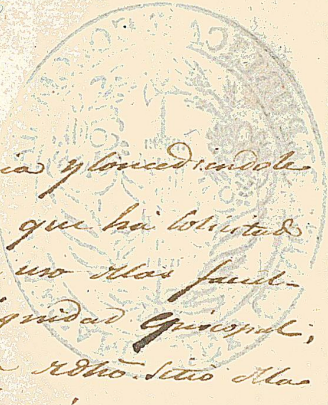 ia y concediendole
que ha solicitado
uso de las facul-
ignidad episcopal;
a dho. Sitio de la